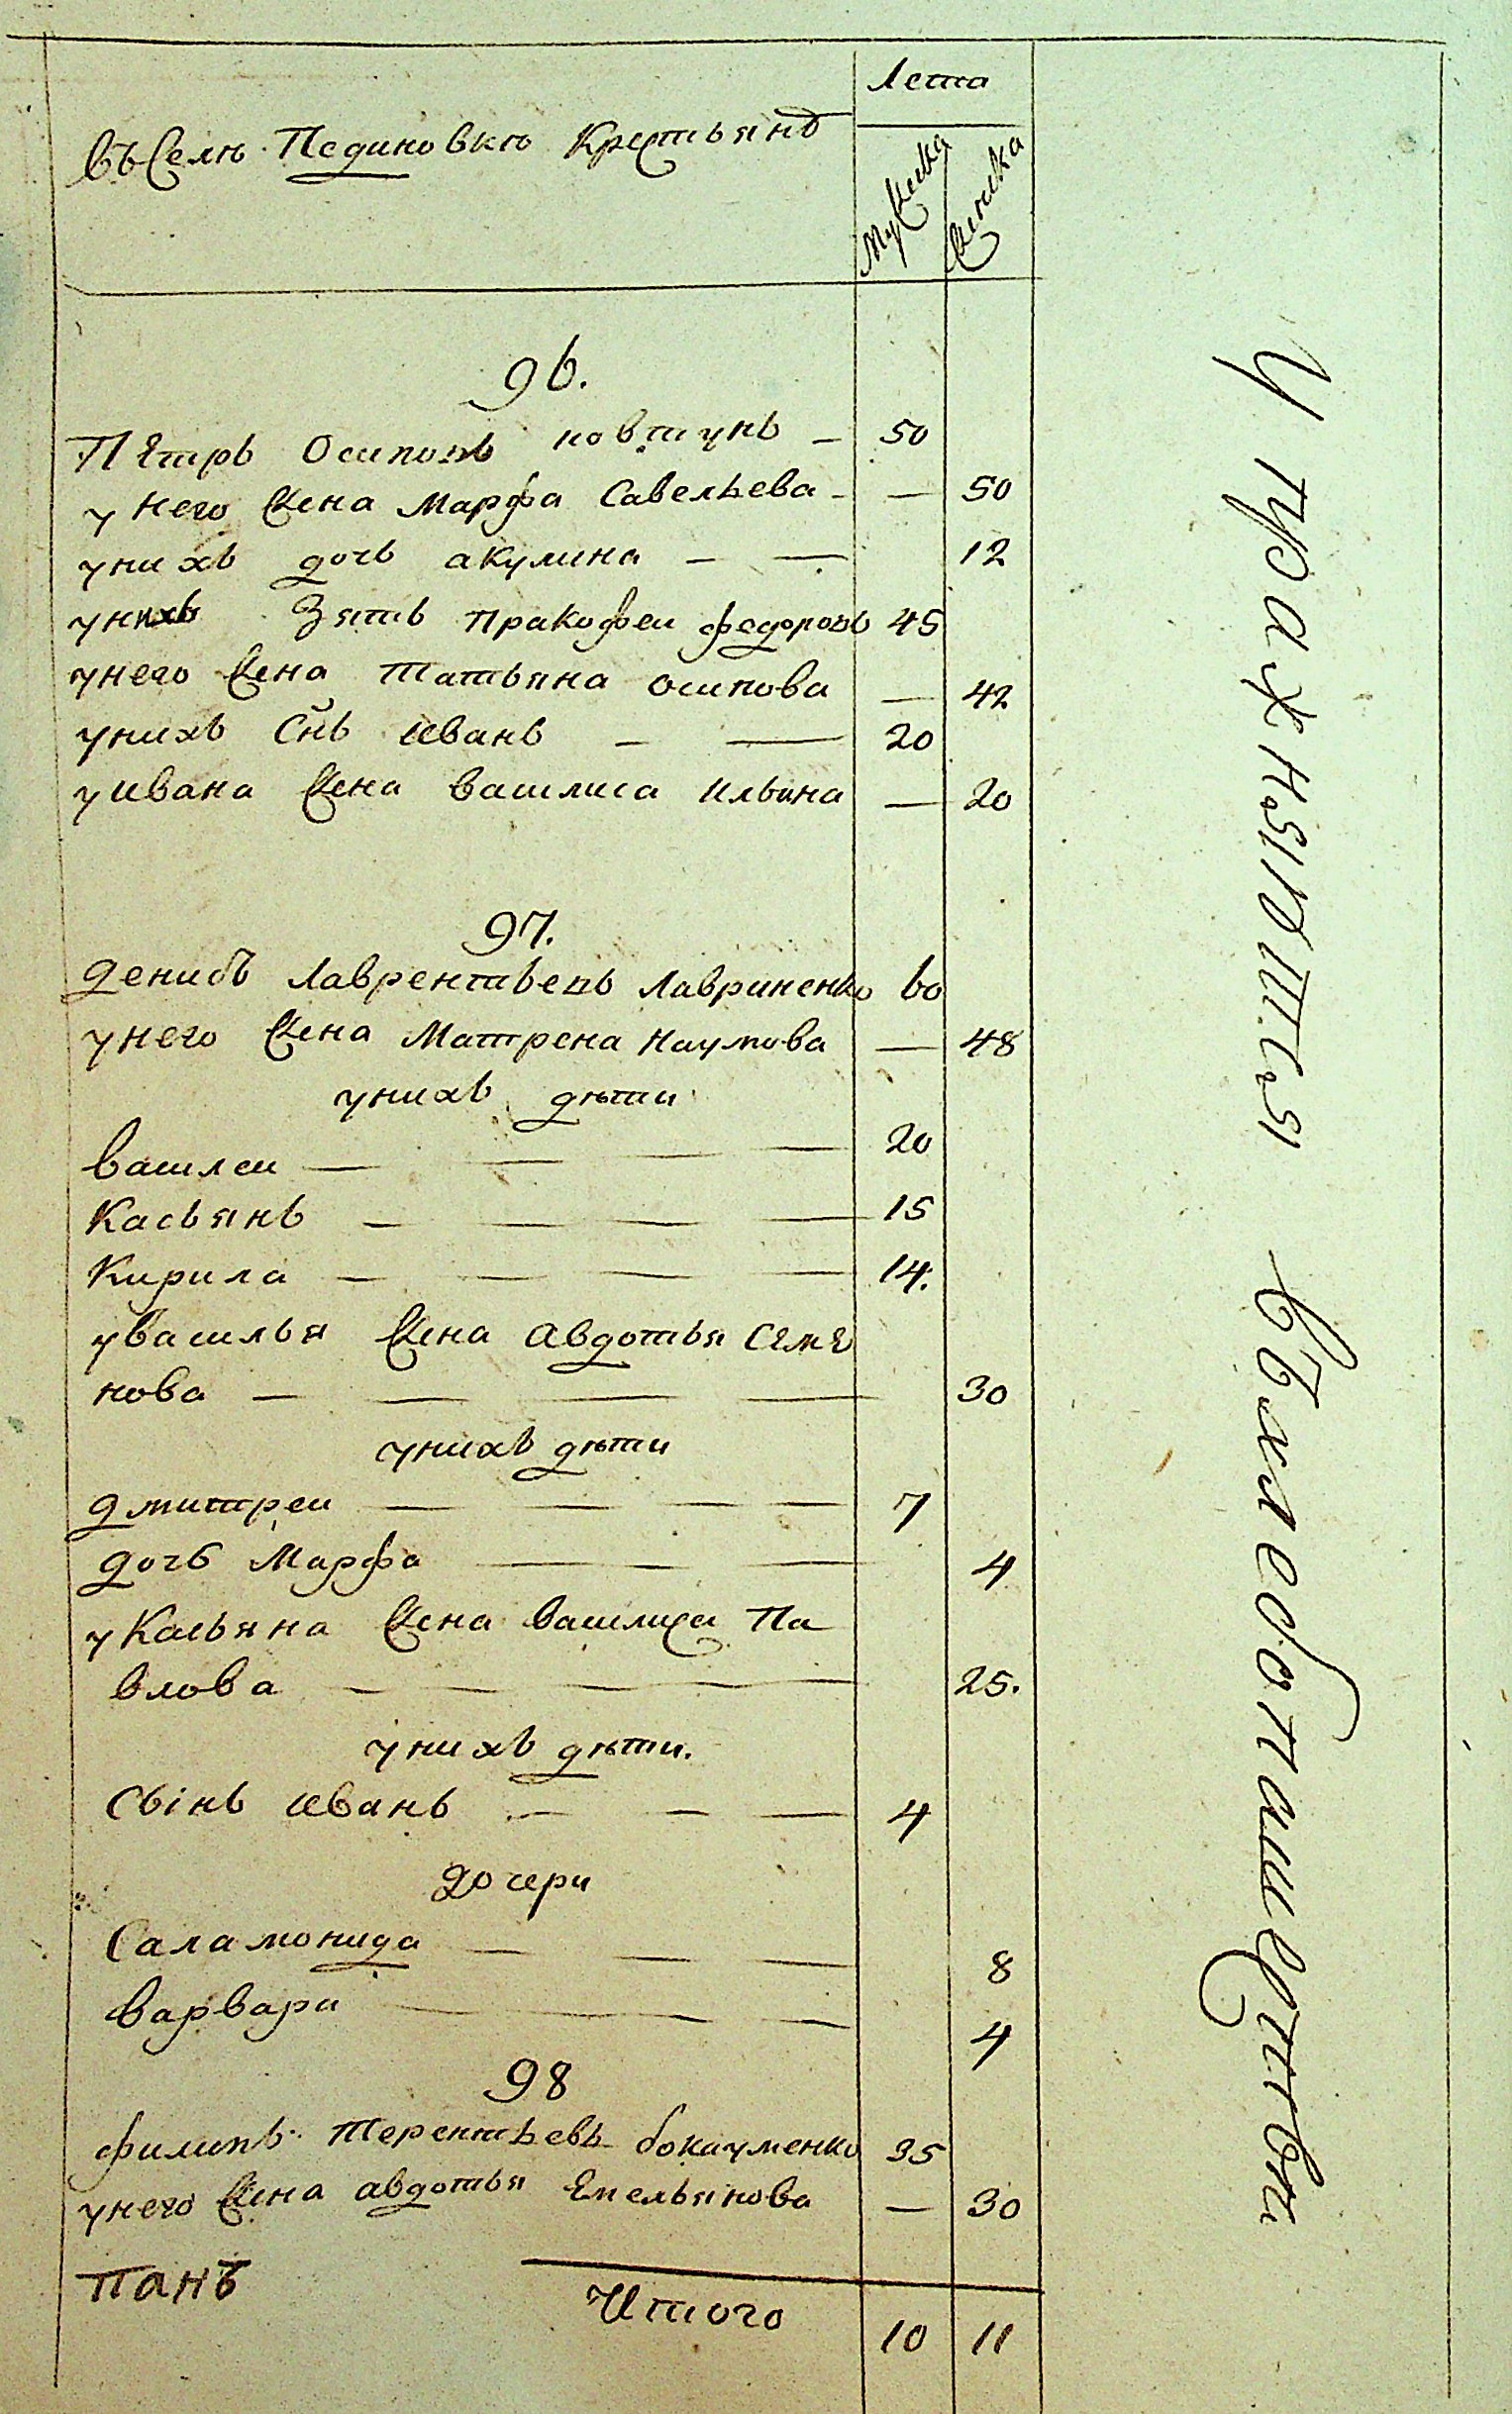 Лета
въ Селѣ Пединовкѣ Крестьянъ
Мужска Женска
96.
Петръ Осиповъ Ковтунъ — 50
у него жена Марфа Савельева — — 50
у нихъ дочь акулина — — 12
у нихъ Зять Пракофеи федоровъ 45
у него жена Татьяна осипова — 42
у нихъ Снъ иванъ — — 20
у ивана жена василиса ильина — 20
97.
Денисъ Лаврентьевъ Лавриненко 60
у него жена Матрена Наумова — 48
у нихъ дѣти
василеи — — — — 20
Касьянъ — — — — 15
Кирила — — — — 14.
у василья жена авдотья Семе
нова — — — — 30
у нихъ дѣти
дмитреи — — — — 7
дочь Марфа — — 4
у Касьяна жена василиса Па
влова — — — — 25.
у нихъ дѣти.
Сынъ иванъ — — — 4
дочери
Саламонида — — — 8
варвара — — — 4
98
филипъ Терентьевъ 35
у него жена авдотья Емельянова — 30
панъ
Итого 10 11